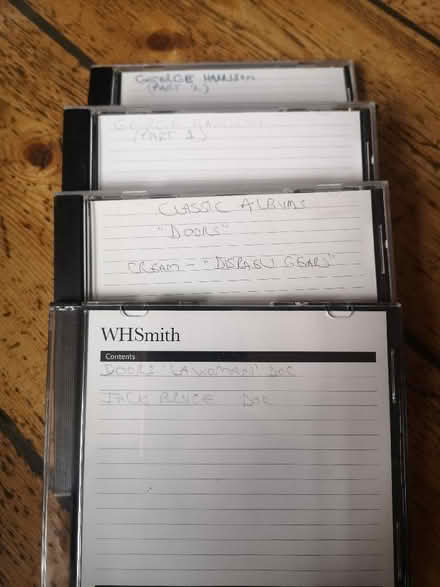 GEORGE HARRISON
(PART 2)
GEORGE HARRISON
(PART 1)
CLASSIC ALBUMS
"DOORS"
CREAM - "DISRAELI GEARS"
WHSmith
Contents
DOORS "LA WOMAN" DOC
JACK BRUCE DOC